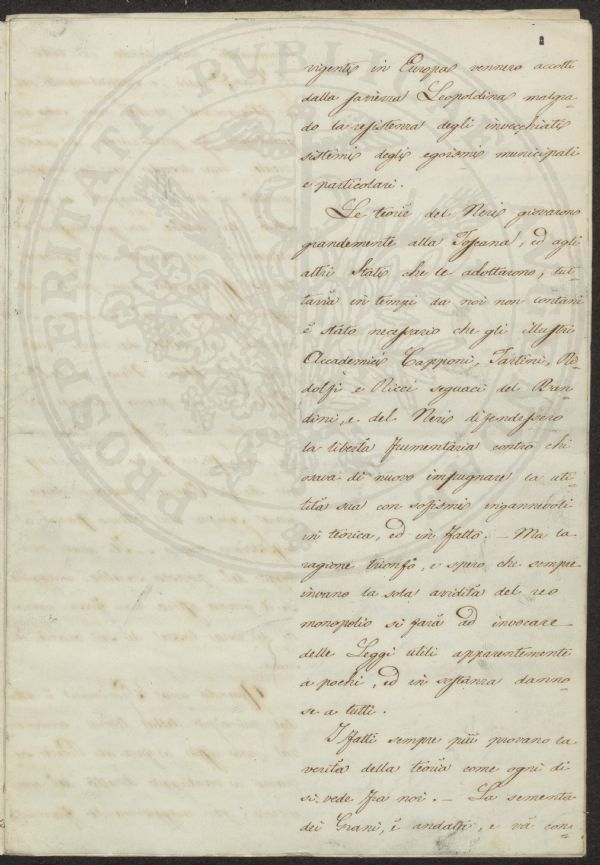 vigenti in Europa vennero accolti
dalla saviezza Leopoldina malgra-
do la resistenza degli invecchiati
sistemi degli egoismi municipali
e particolari.
Le teorie del Neri giovarono
grandemente alla Toscana, ed agli
altri Stati che le adottarono, tut-
tavia in tempi da noi non lontani
è stato necessario che gli illustri
Accademici Capponi, Tartini, Ri-
dolfi e Ricci seguaci del Ban-
dini, e del Neri difendessero
la libertà frumentaria contro chi
osava di nuovo impugnare la uti-
lità sua con sofismi ingannevoli
in teorica, ed in fatto. - Ma la
ragione trionfò, e spero che sempre
invano la sola avidità del reo
monopolio si farà ad invocare
delle Leggi utili apparentemente
a pochi, ed in sostanza danno-
se a tutti.
I fatti sempre più provano la
verità della teoria come ogni di
si vede fra noi. - La sementa
dei Grani, è andata, e và con-
PROSPERITATI PVBLICAE